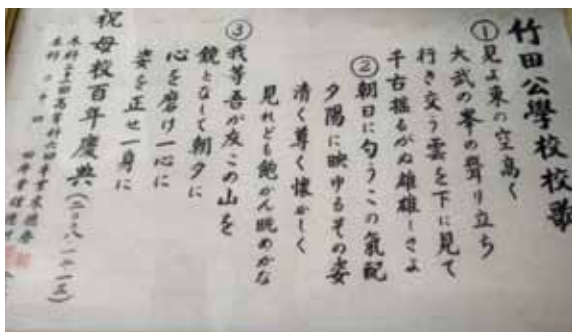 竹田公學校校歌
①見よ東の空高く
大武の峯の聳り立ち
行き交う雲を下に見て
千古揺るがぬ雄雄しさよ
②朝日に匂うこの氣配
夕陽に映ゆるその姿
清く尊く懐かしく
見れども飽かん眺めかな
③我等吾が友この山を
鏡となして朝夕に
心を磨け一心に
姿を正せ一身に
祝母校百年慶典